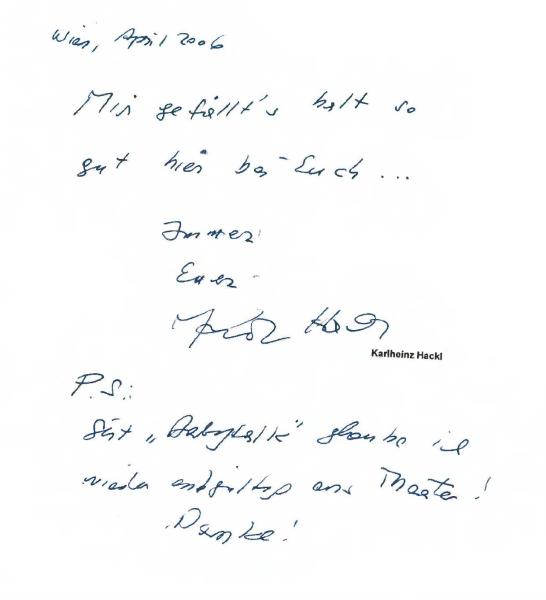 Wien, April 2006
Mir gefällt's halt so
gut hier bei Euch ...
Immer
Euer
Karlheinz Hackl
P.S.:
Seit „Babytalk“ glaube ich
wieder endgültig ans Theater!
Danke!